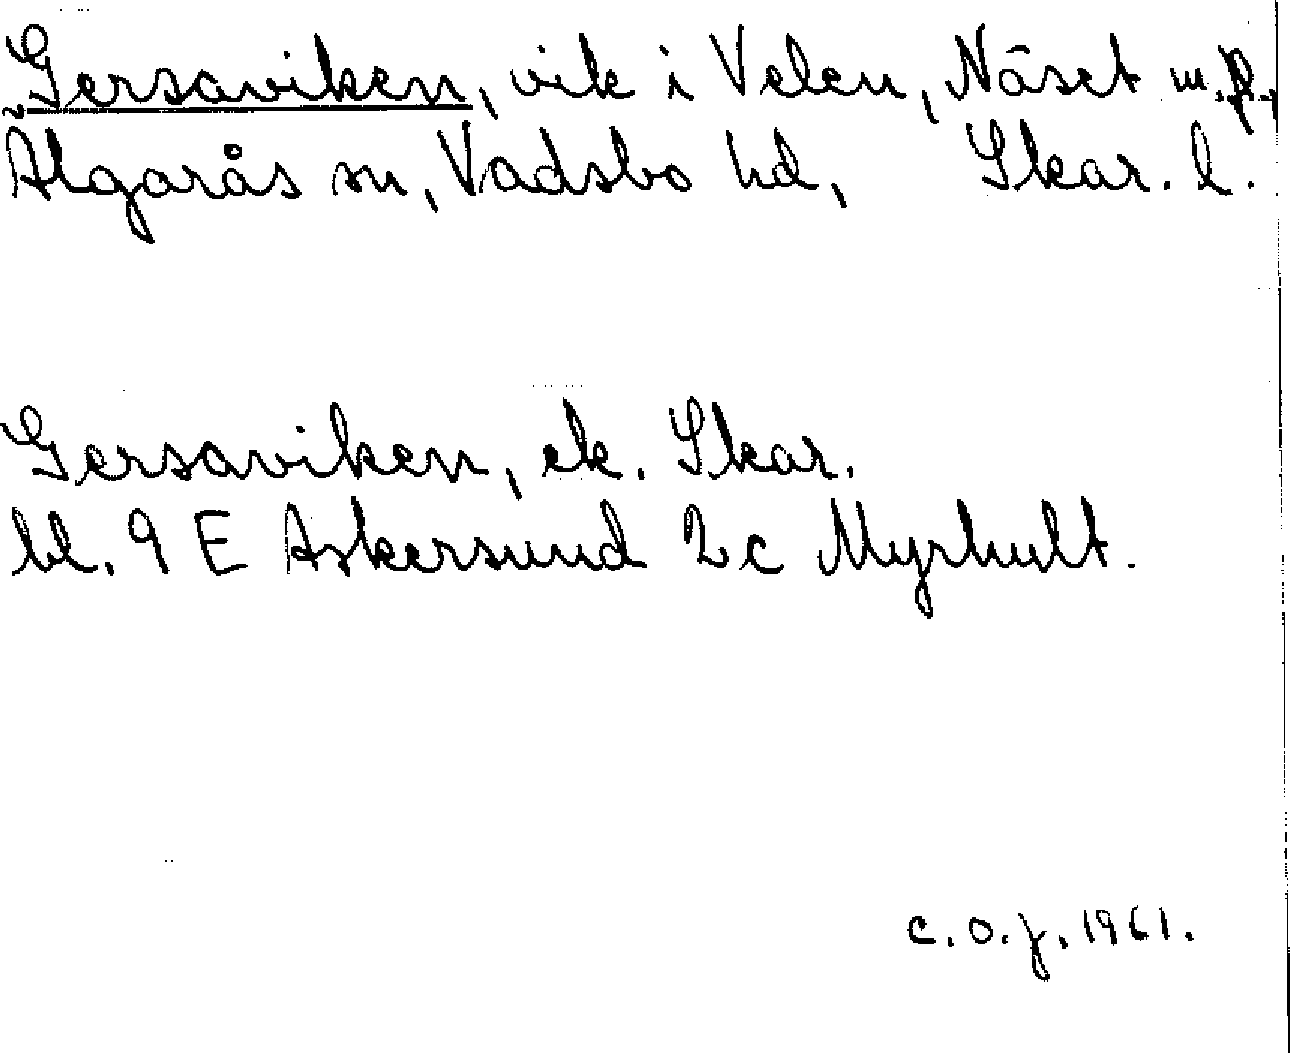 Gersaviken, vik i Velen, Näset m.fl.,
Älgarås sn, Vadsbo hd, Skar. l.
Gersaviken, ek. Skar.
bl. 9 E Askersund 2c Myrhult.
c.o.j. 1961.